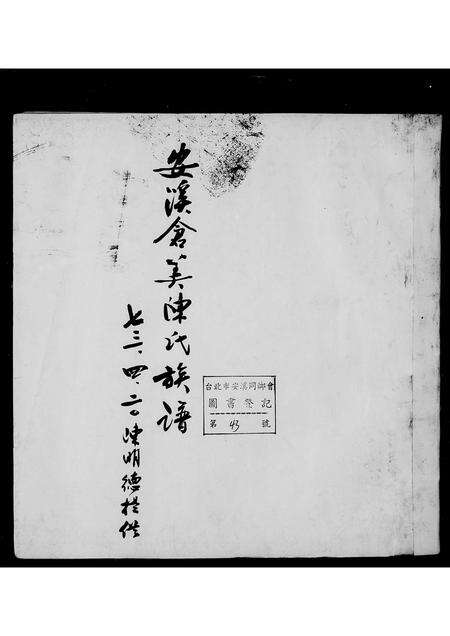 安溪倉美陳氏族譜
七三、四、二〇陳明德提供
台北市安溪同鄉會
圖書登記
第 43 號